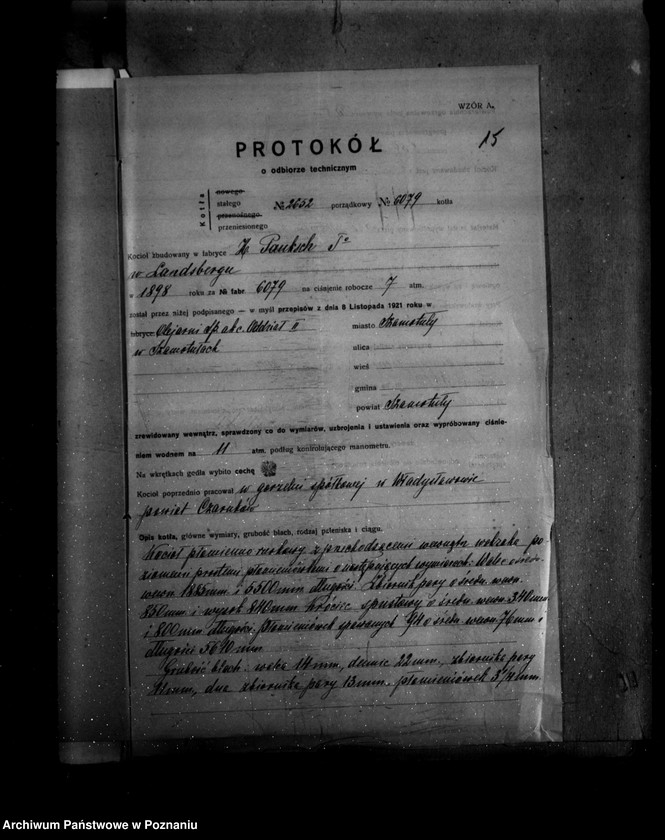 WZÓR A.
15
PROTOKÓŁ
o odbiorze technicznym
Kotła
nowego
stałego
przenośnego
przeniesionego
№ 2652 porządkowy № 6079 kotła
Kocioł zbudowany w fabryce H. Pauksch
w Landsbergu
w 1898 roku za № fabr. 6079 na ciśnienie robocze 7 atm.
został przez niżej podpisanego — w myśl przepisów z dnia 8 Listopada 1921 roku w
fabryce Olejarni Sp. akc. Oddział II
w Szamotułach
miasto Szamotuły
ulica
wieś
gmina
powiat Szamotuły
zrewidowany wewnątrz, sprawdzony co do wymiarów, uzbrojenia i ustawienia oraz wypróbowany ciśnie-
niem wodnem na 11 atm. podług kontrolującego manometru.
Na wkrętkach gedła wybito cechę
Kocioł poprzednio pracował w gorzelni spółkowej w Władysławowie
powiat Czarnków
Opis kotła, główne wymiary, grubość blach, rodzaj paleniska i ciągu.
Kocioł płomienno rurkowy z przechodzącemi wewnątrz walczaka po-
ziomemi prostemi płomieniówkami o następujących wymiarach: Walec o średn.
wewn. 1885mm i 5500mm długości. Zbiornik pary o średn. wewn.
850mm i wysok. 840mm. Króciec spustowy o średn. wewn. 340mm
i 800mm długości, płomieniówek o średn. wewn. 76mm i
długości 5640mm.
Grubość blach: walca 14mm, dennic 22mm, zbiornika pary
dna zbiornika pary 13mm. płomieniówek 3¼mm
Archiwum Państwowe w Poznaniu